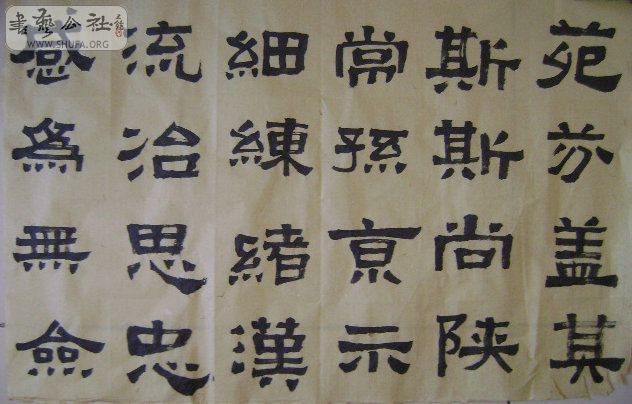 苑芬盖其
斯斯尚陕
常孫京示
細練緒漢
流治思忠
感為無僉
書藝公社
WWW.SHUFA.ORG